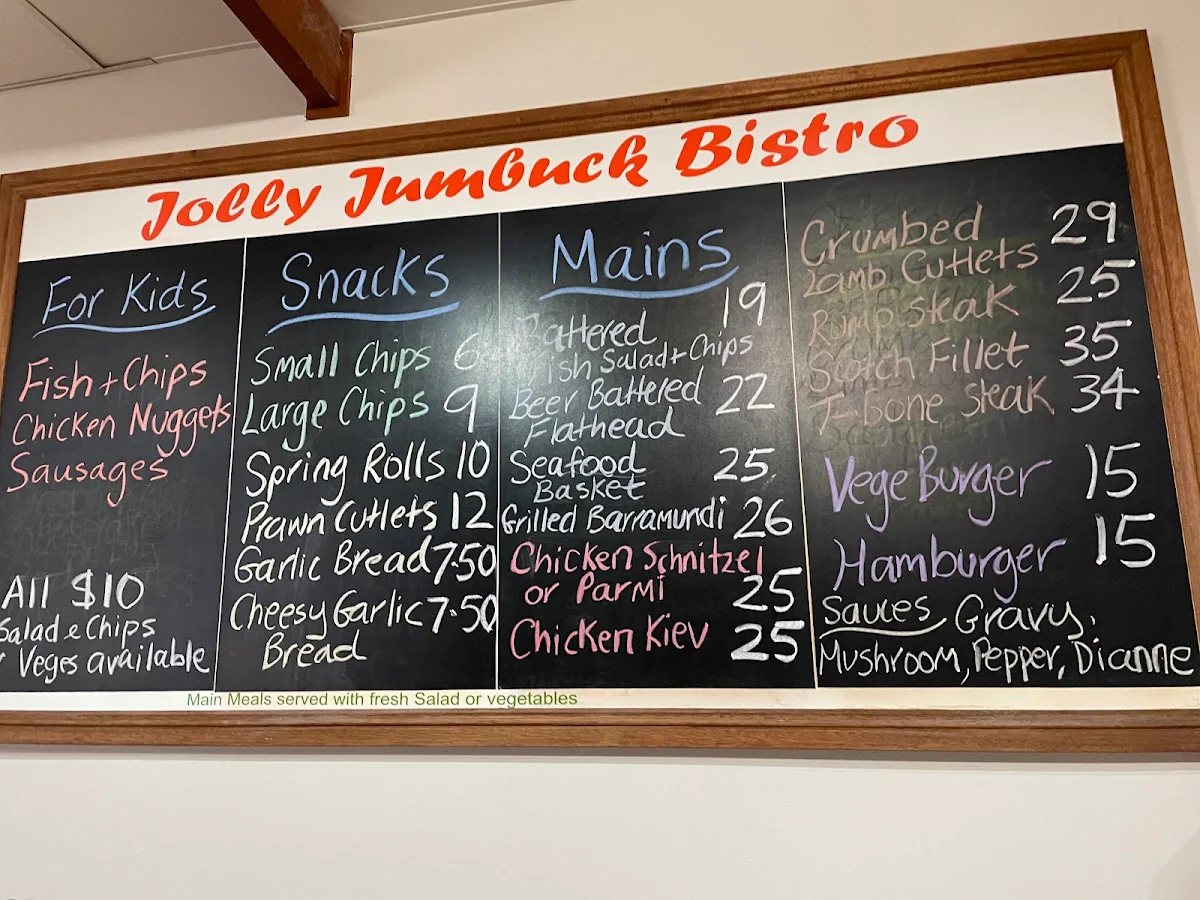 Jolly Jumbuck Bistro
For Kids
Fish + Chips
Chicken Nuggets
Sausages
All $10
Salad & Chips
Veges available
Snacks
Small Chips 6
Large Chips 9
Spring Rolls 10
Prawn Cutlets 12
Garlic Bread 7.50
Cheesy Garlic 7.50
Bread
Mains
Battered 19
ish Salad + Chips
Beer Battered 22
Flathead
Seafood 25
Basket
Grilled Barramundi 26
Chicken Schnitzel
or Parmi 25
Chicken Kiev 25
Crumbed 29
Lamb Cutlets
Rump Steak 25
Scotch Fillet 35
T-bone Steak 34
Vege Burger 15
Hamburger 15
Sauces Gravy,
Mushroom, Pepper, Dianne
Main Meals served with fresh Salad or vegetables